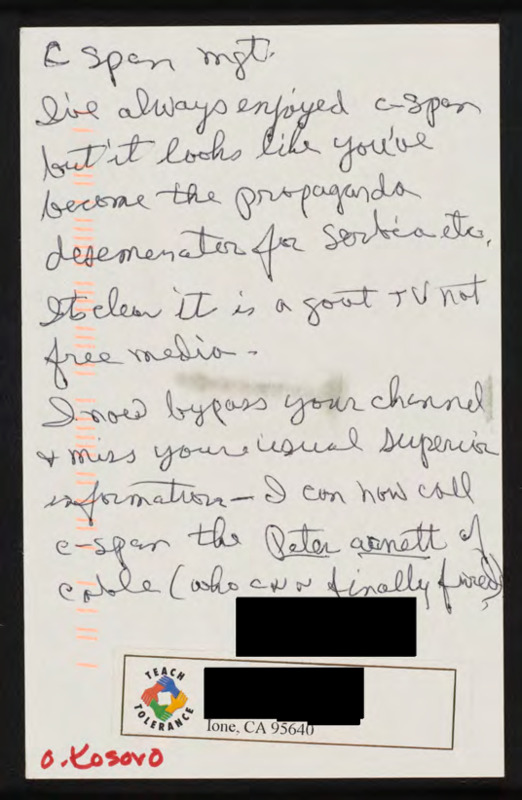 C Span mgt.
I've always enjoyed c-span
but it looks like you've
become the propaganda
desemenator for Serbia etc.
Its clear it is a govt TV not
free media -
I now bypass your channel
& miss your usual superior
information - I can now call
c-span the Peter arnett of
cable (who cnn finally fired)
TEACH
TOLERANCE
Ione, CA 95640
o. Kosovo